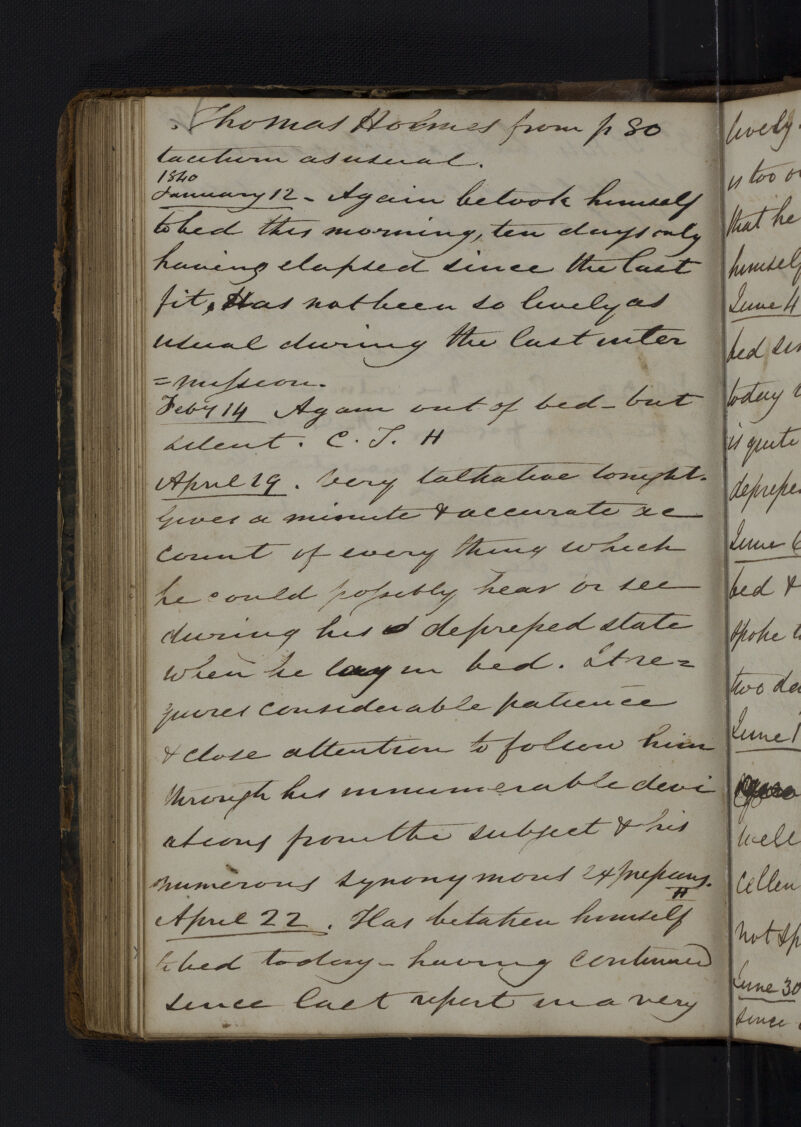 Thomas Holmes from p 80
taciturn as usual.
1840
January 12 - Again betook himself
to bed this morning, ten days only
having elapsed since the last
fit, Has not been so lively as
usual during the last inter
=mission.
Feby 14 Again out of bed - but
silent. C. T. H
April 19. Very talkative tonight.
Gives a minute & accurate ac
count of every thing which
he could possibly hear or see
during his depressed state
when he lay in bed. It re=
quires considerable patience
& close attention to follow him
through his innumerable devi
ations from the subject & his
numerous synonymous expressions.
H
April 22. Has betaken himself
to bed today - having continued
since last report in a very
lively
is too
that he
himself
June 4
bed
today
is quite
June 6
bed &
spoke
two
June 1
well
not
June 30
since